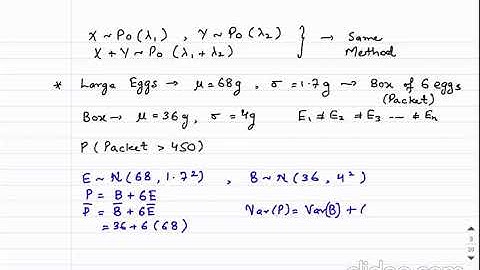 X ~ Po (λ₁) , Y ~ Po (λ₂) } → Same
X + Y ~ Po (λ₁ + λ₂) Method
* Large Eggs → μ = 68g , σ = 1.7g → Box of 6 eggs
(Packet)
Box → μ = 36g , σ = 4g E₁ ≠ E₂ ≠ E₃ --- ≠ Eₙ
P ( Packet > 450)
E ~ N (68, 1.7²) , B ~ N (36, 4²)
P = B + 6E
P̅ = B̅ + 6E̅ Var(P) = Var(B) + (
= 36 + 6 (68)